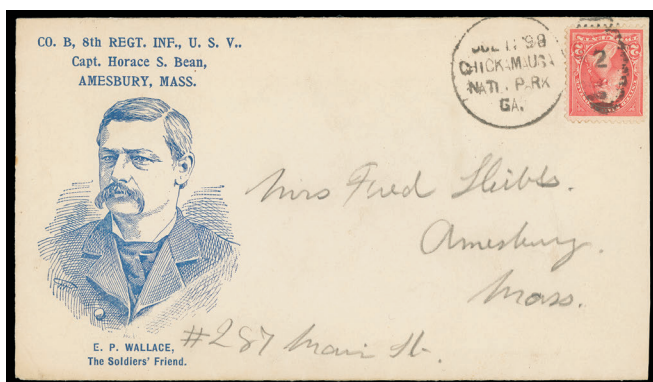 CO. B, 8th REGT. INF., U. S. V..
Capt. Horace S. Bean,
AMESBURY, MASS.
JUL 11 98
CHICKAMAUGA
NAT'L PARK
GA.
2
Mrs Fred
Amesbury.
Mass.
#287 Main St.
E. P. WALLACE,
The Soldiers' Friend.